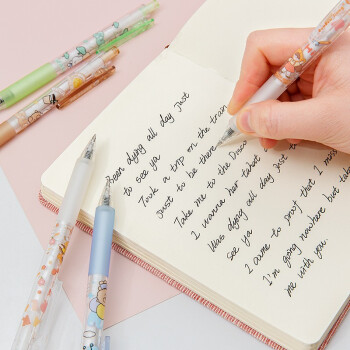 Been dying all day just
to see ya
Took a trip on the train
just to be there
Take me to the Disco
I wanna bar tabat
Was dying all day just th
see ya
I aime to prof that I mi
I'm going nowhere but
me with you.